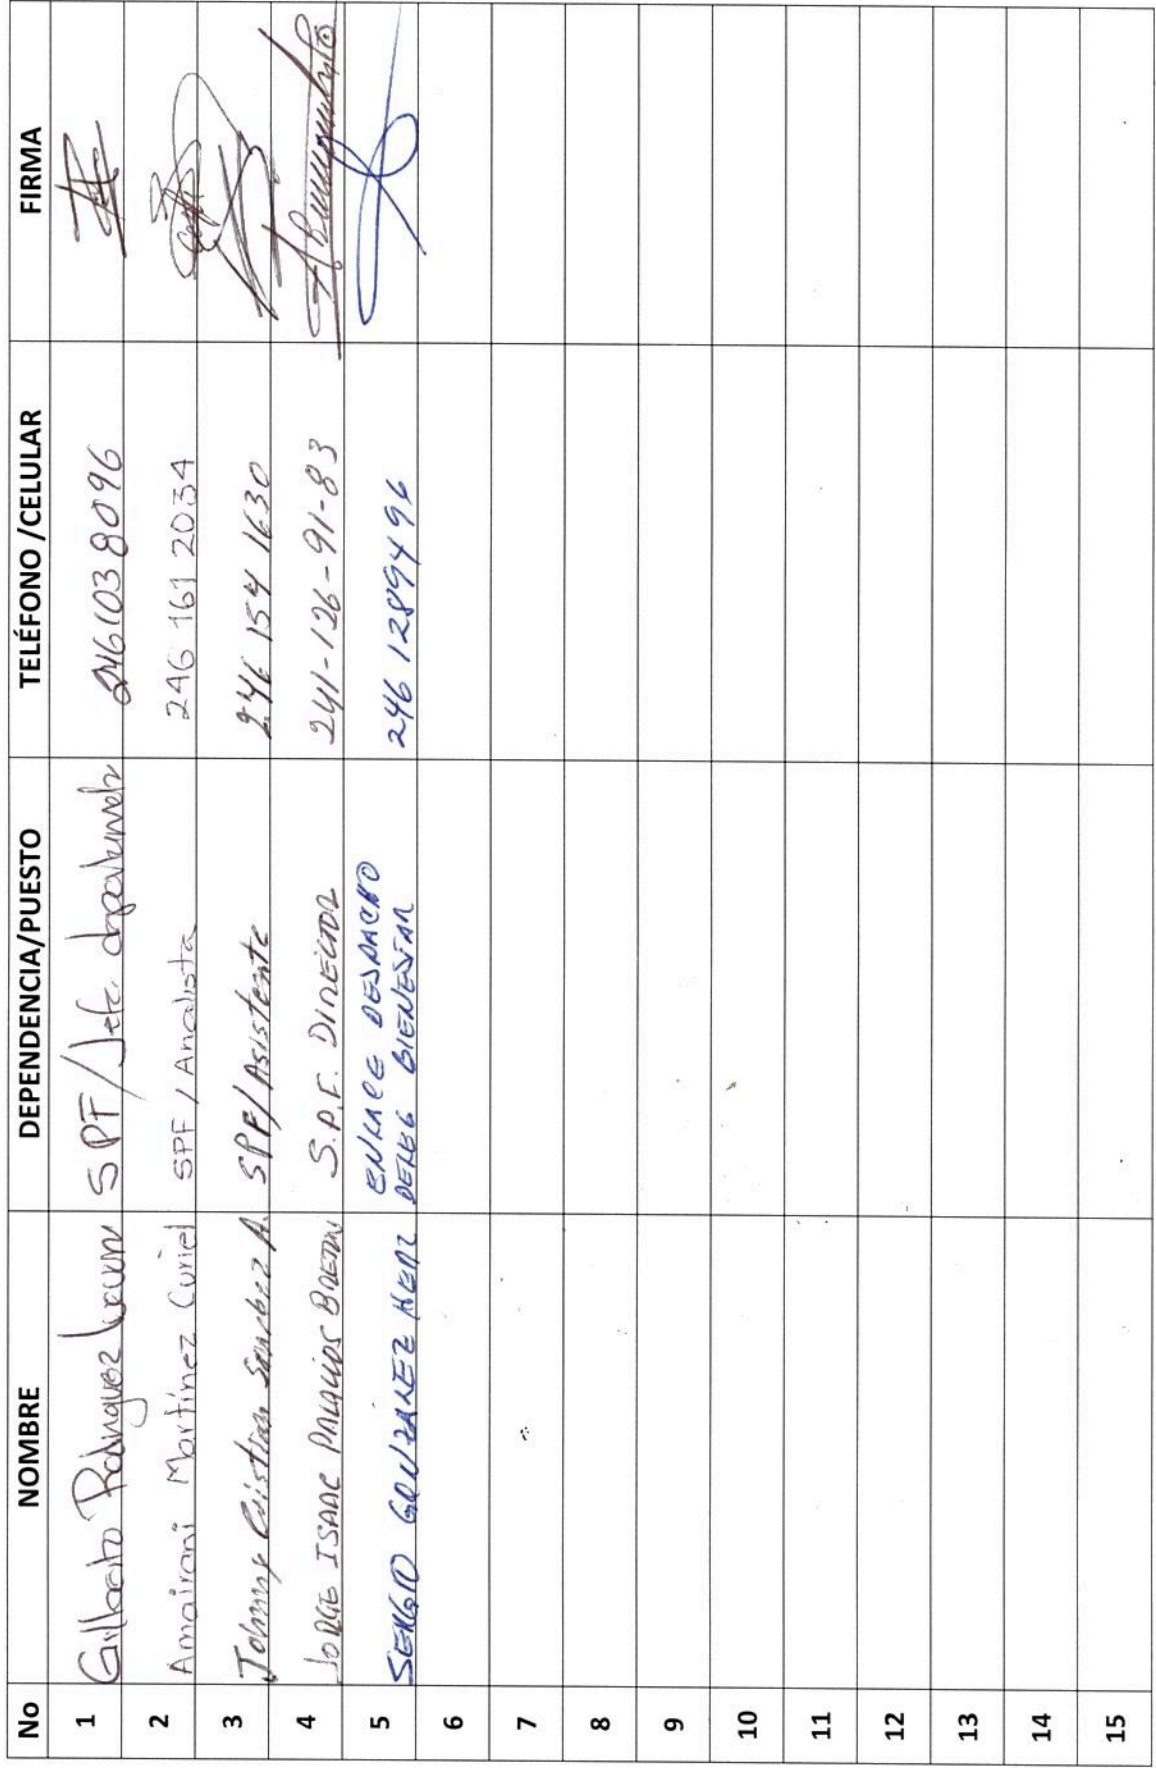 No NOMBRE DEPENDENCIA/PUESTO TELÉFONO /CELULAR FIRMA
1 Gilberto Rodriguez SPF/Jefe departamento 2461038096
2 Amairani Martínez Curiel SPF / Analista 246 161 2034
3 Johnny Cristian Sanchez A. SPF/Asistente 246 154 1630
4 JORGE ISAAC PALACIOS BRETON S.P.F. DIRECTOR 241-126-91-83
5 SERGIO GONZALEZ HERZ ENLACE DESPACHO
DELEG BIENESTAR 246 1289496
6
7
8
9
10
11
12
13
14
15